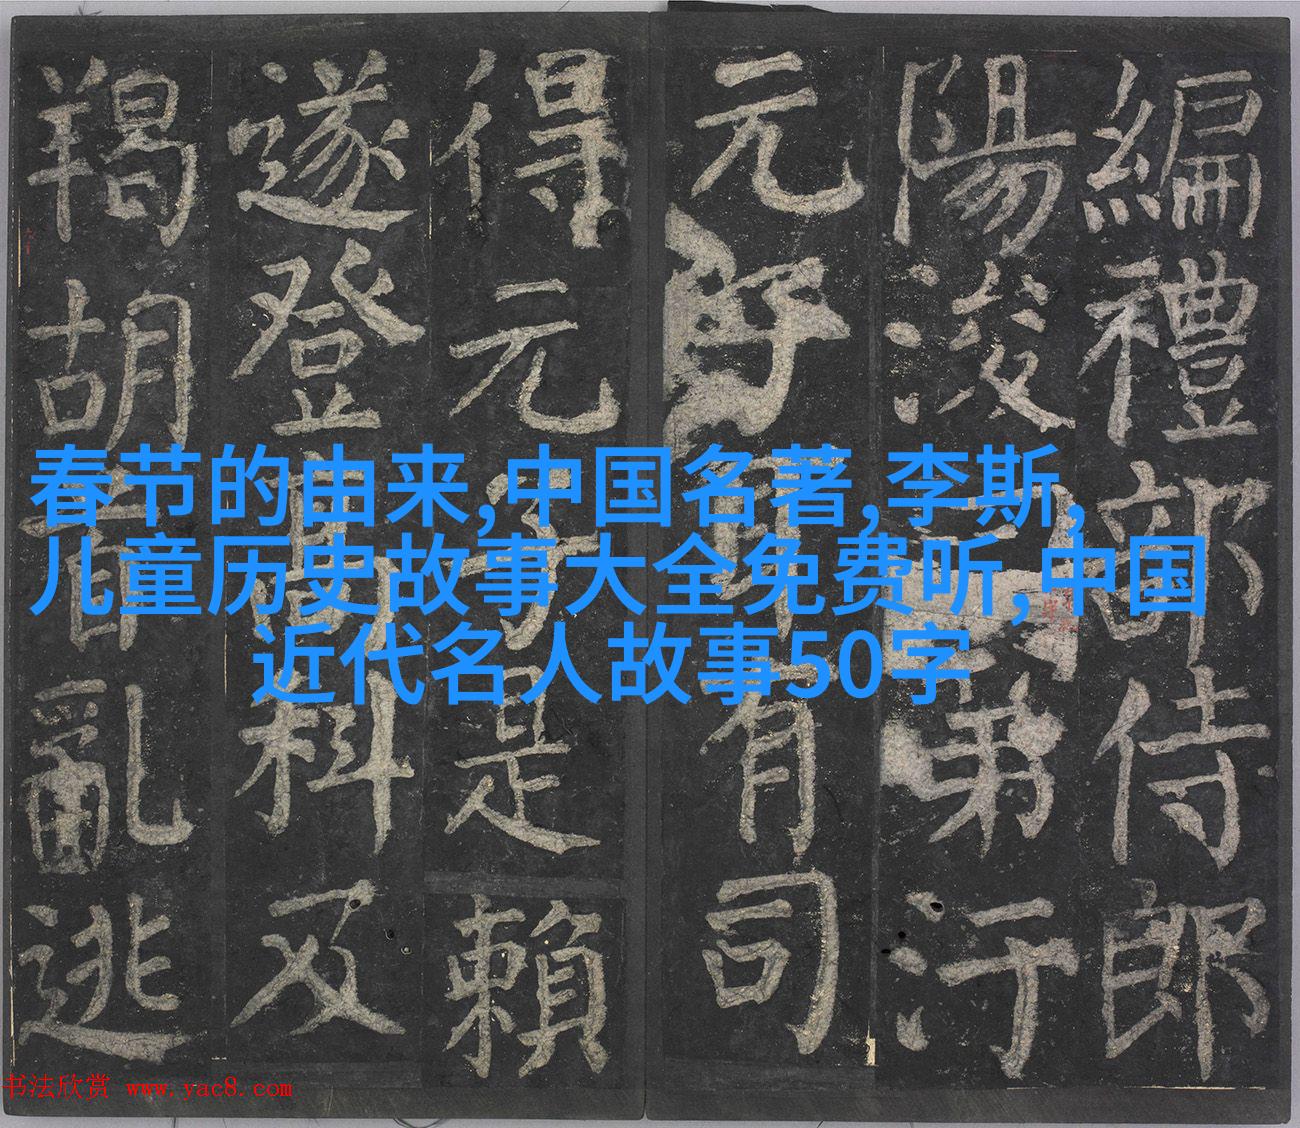 編禮部侍郎
陽浚第汙
元有司
得元子是賴
遂登高科及
羯胡首亂逃
春节的由来,中国名著,李斯,
儿童历史故事大全免费听,中国
近代名人故事50字
书法欣赏 www.yac8.com